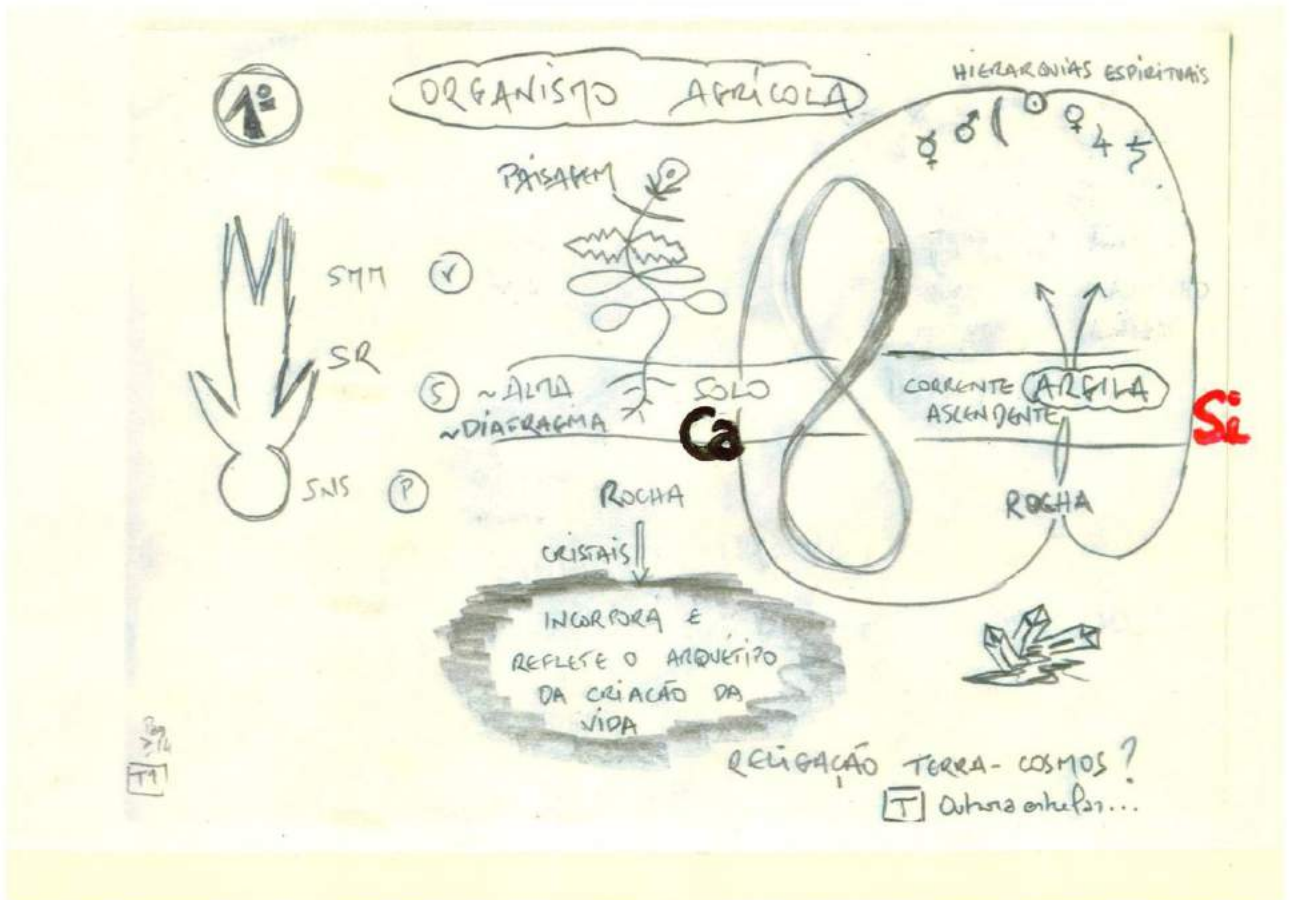 1º
ORGANISMO AGRÍCOLA
HIERARQUIAS ESPIRITUAIS
☿ ♂ ☾ ☉ ♀ ♃ ♄
PAISAGEM
SMM V
SR
S ~ALMA
~DIAFRAGMA
SOLO
Ca
CORRENTE ARGILA
ASCENDENTE
Si
SNS P
ROCHA
ROCHA
CRISTAIS
INCORPORA E
REFLETE O ARQUÉTIPO
DA CRIAÇÃO DA
VIDA
RELIGAÇÃO TERRA-COSMOS?
T
Pag
T1